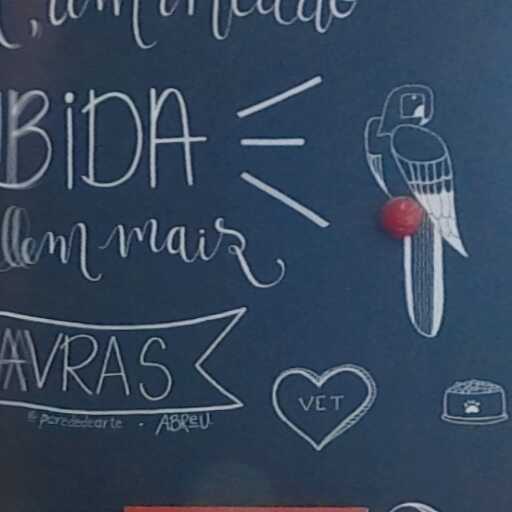 BIDA
lem mais
AVRAS
@parededearte . ABReU.
VET